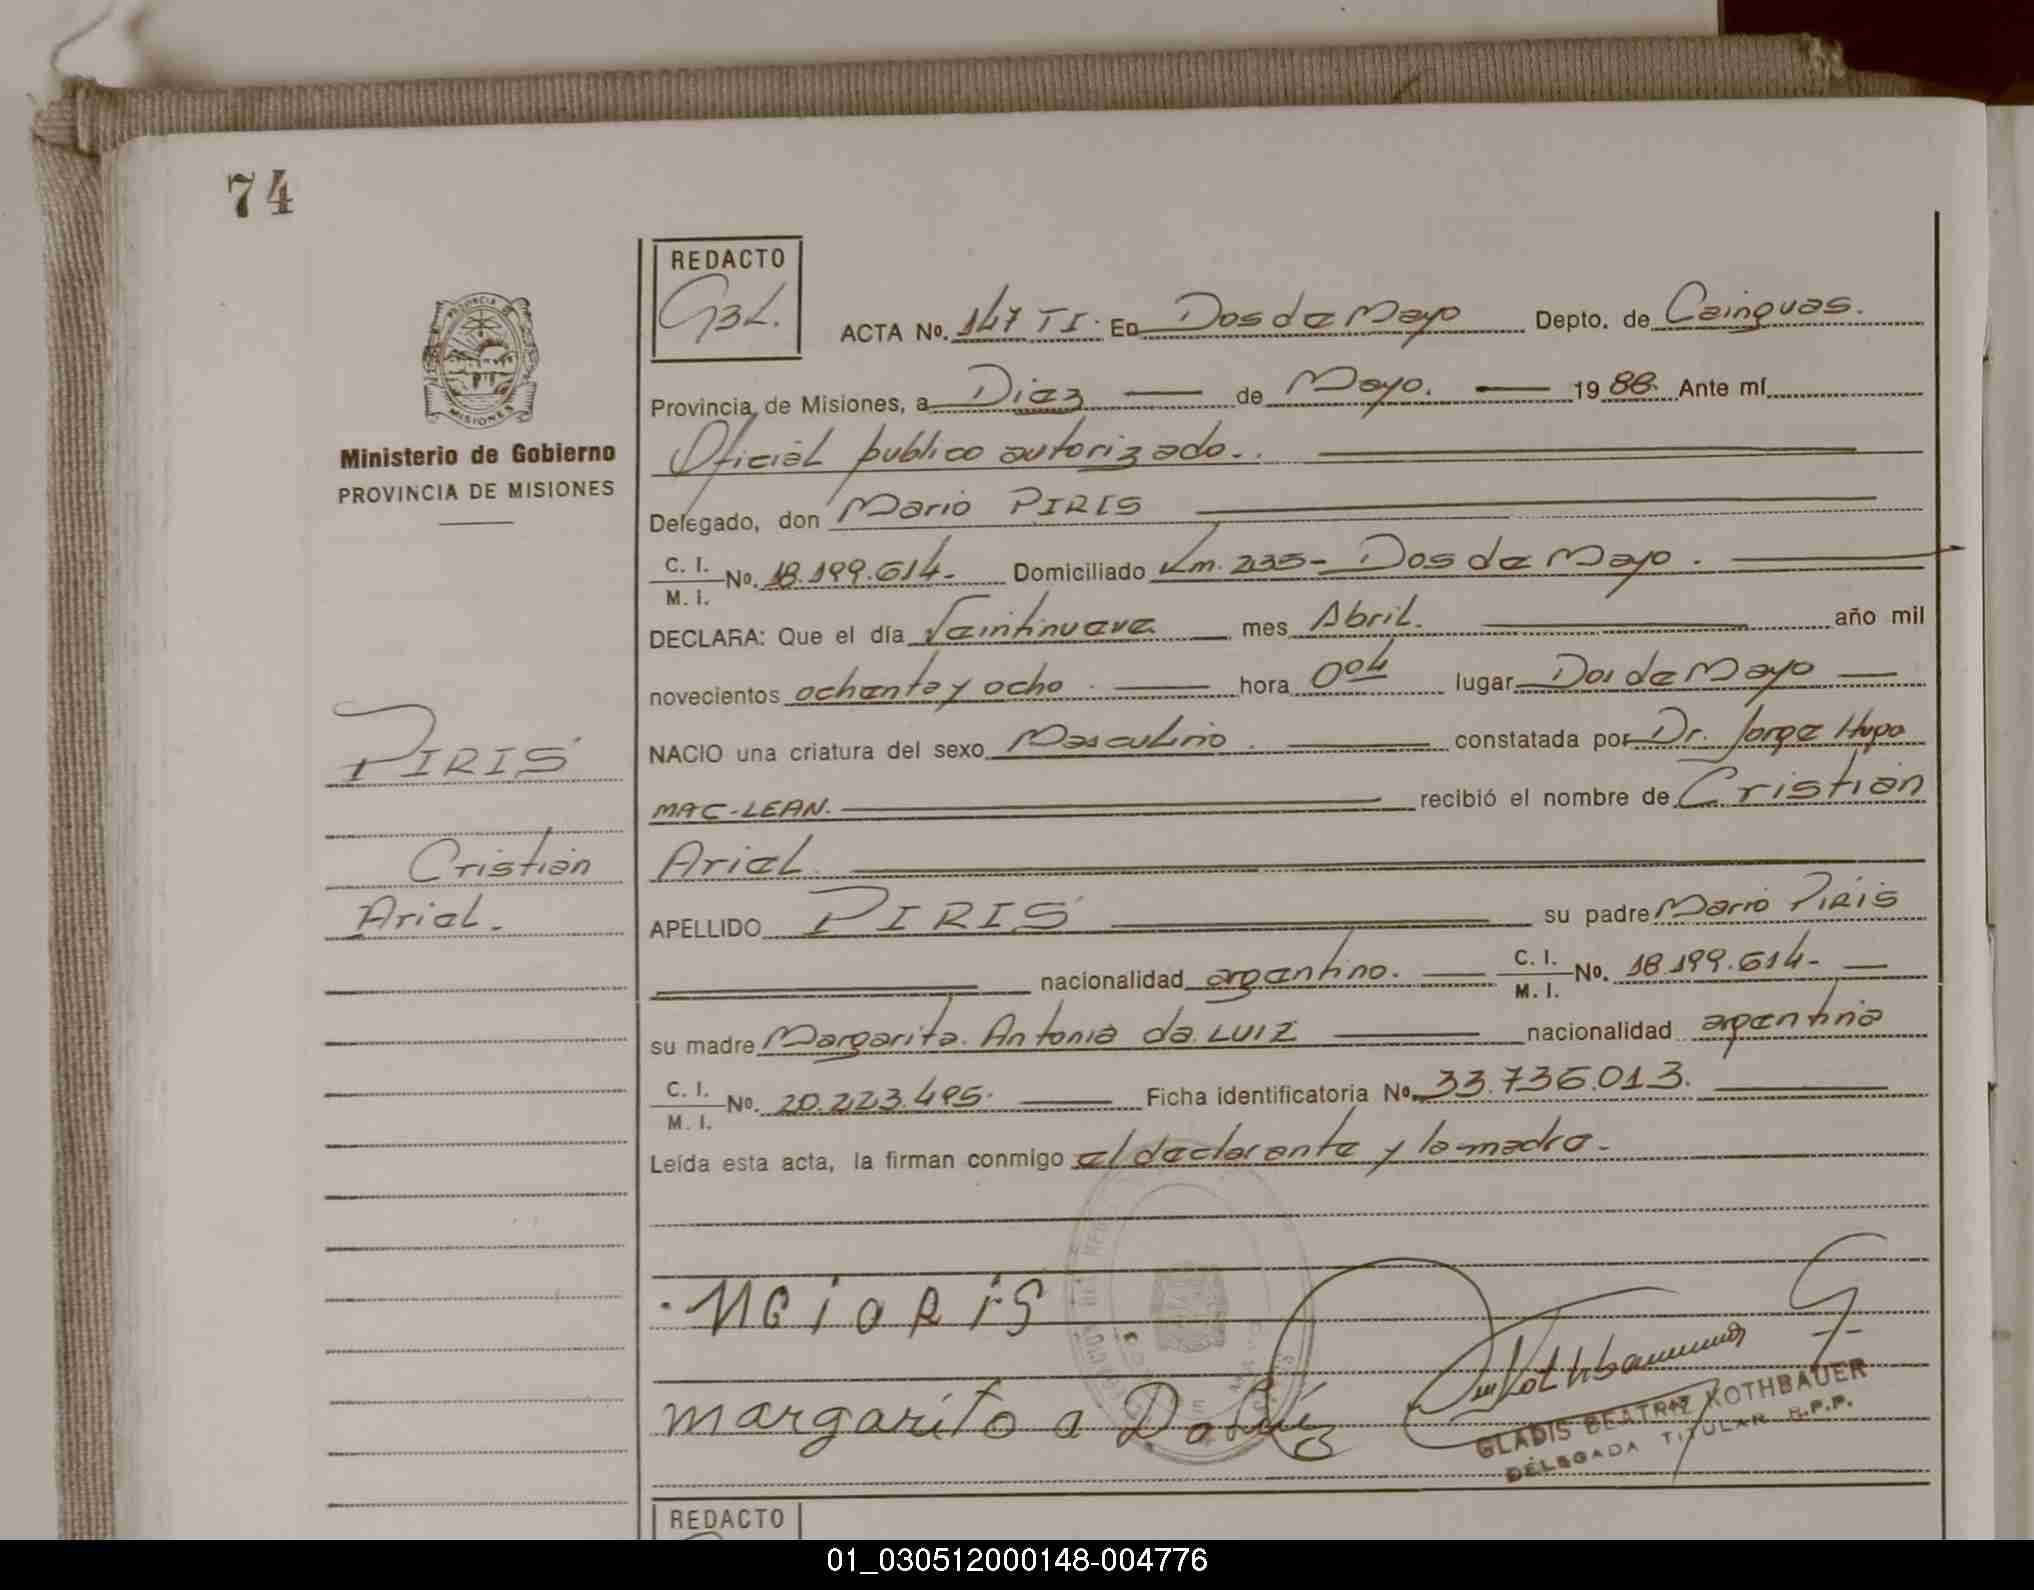 74
REDACTO
G3L.
ACTA No. 147 TI. En Dos de Mayo Depto. de Cainguas.
Provincia de Misiones, a Diez de Mayo. 1988. Ante mí
Oficial publico autorizado.
Delegado, don Mario PIRIS
PROVINCIA DE MISIONES
Ministerio de Gobierno
PROVINCIA DE MISIONES
C. I. M. I. No. 18.199.614.- Domiciliado Km. 235- Dos de Mayo.
DECLARA: Que el día Veintinueve mes Abril. año mil
novecientos ochenta y ocho. hora 004 lugar Dos de Mayo
NACIO una criatura del sexo Masculino. constatada por Dr. Jorge Hugo
MAC-LEAN. recibió el nombre de Cristian
Ariel.
APELLIDO PIRIS su padre Mario PIRIS
nacionalidad argentino. C. I. M. I. No. 18.199.614.-
su madre Margarita. Antonia da LUIZ nacionalidad argentina
C. I. M. I. No. 20.223.495. Ficha identificatoria No. 33.736.013.
Leída esta acta, la firman conmigo el declarante y la madre.
PIRIS
Cristian
Ariel.
margarito a Da Luiz
GLADIS BEATRIZ KOTHBAUER
DELEGADA TITULAR R.P.P.
REDACTO
01_030512000148-004776